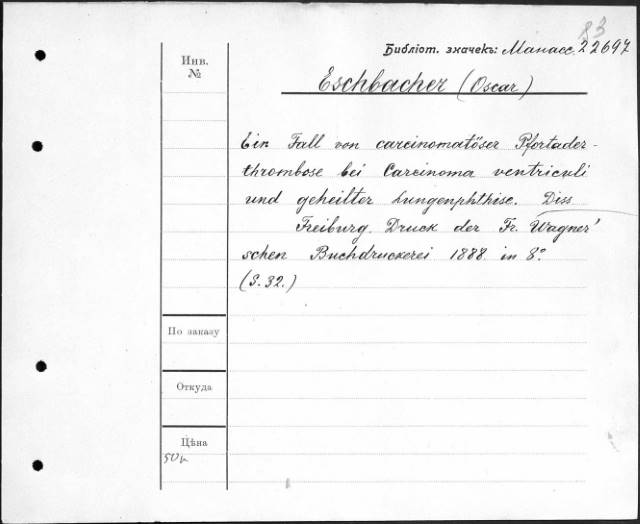 83
Библіот. значекъ: Манасс. 22697
Инв.
№
Eschbacher (Oscar)
Ein Fall von carcinomatöser Pfortader-
thrombose bei Carcinoma ventriculi
und geheilter Lungenphthise. Diss
Freiburg. Druck der Fr. Wagner'
schen Buchdruckerei 1888 in 8°
(S. 32.)
По заказу
Откуда
Цѣна
50к